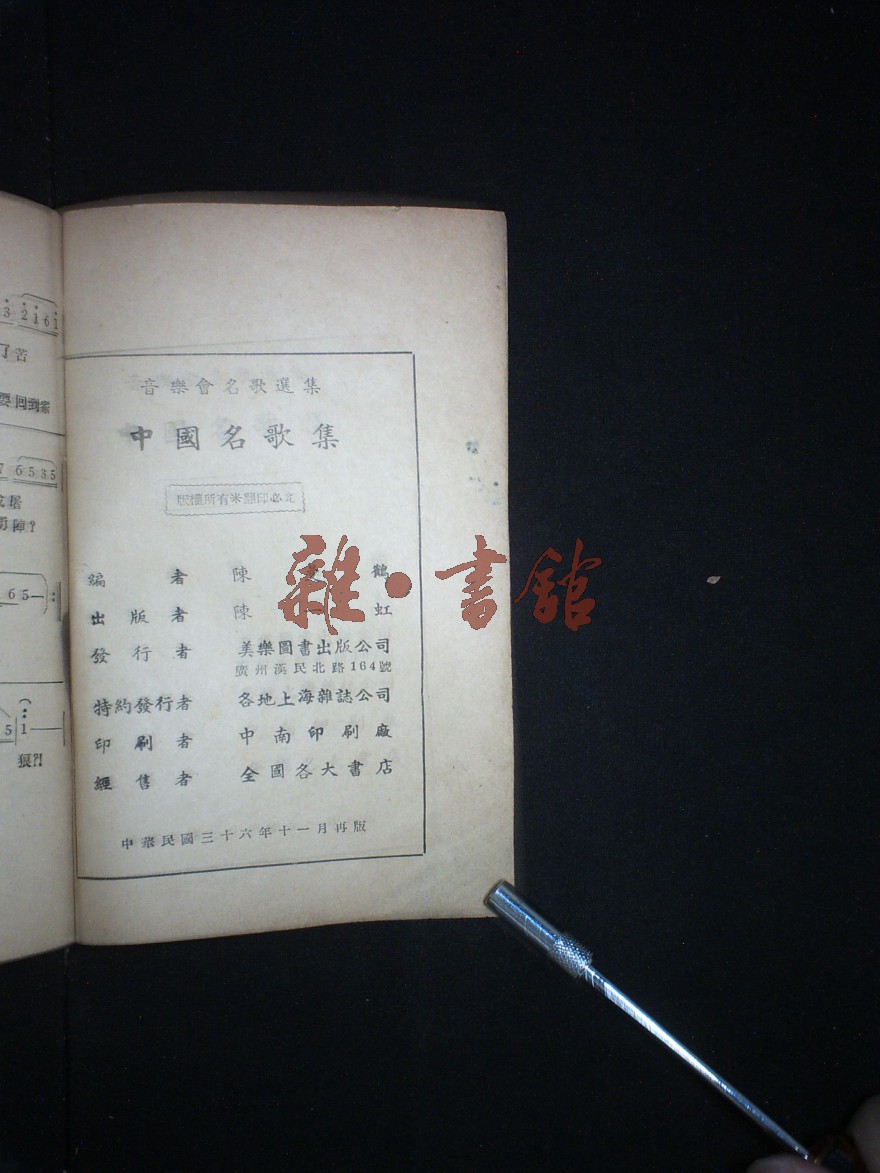 音樂會名歌選集
中國名歌集
版權所有 翻印必究
編者 陳 鶴
出版者 陳 虹
發行者 美樂圖書出版公司
廣州漢民北路164號
特約發行者 各地上海雜誌公司
印刷者 中南印刷廠
經售者 全國各大書店
中華民國三十六年十一月再版
雜·書館
3 2 1 6 1
了苦
要回到家
7 6 5 3 5
陣?
6 5 —
5 1 —
狠?!